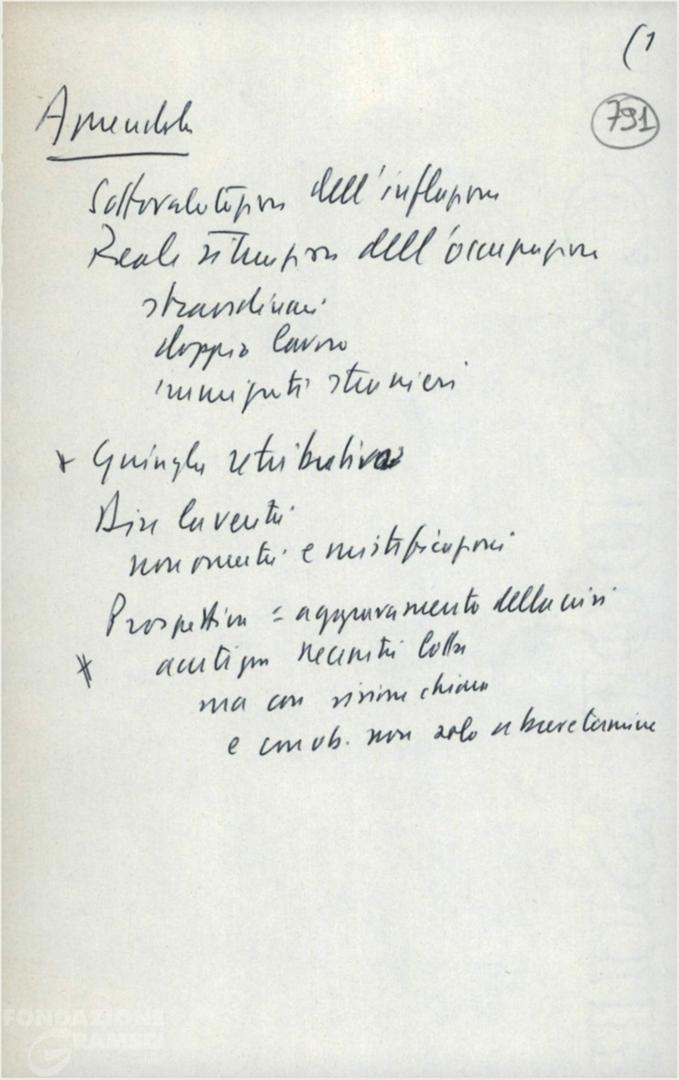 (1
791
Amendola
Sottovalutazione dell'inflazione
Reale situazione dell'occupazione
straordinari
doppio lavoro
immigrati stranieri
* Giungla retributiva
Dire la verità
non omertà e mistificazioni
Prospettiva = aggravamento della crisi
* necessità lotta
ma con visione chiara
e con ob. non solo a breve termine
FONDAZIONE
GRAMSCI